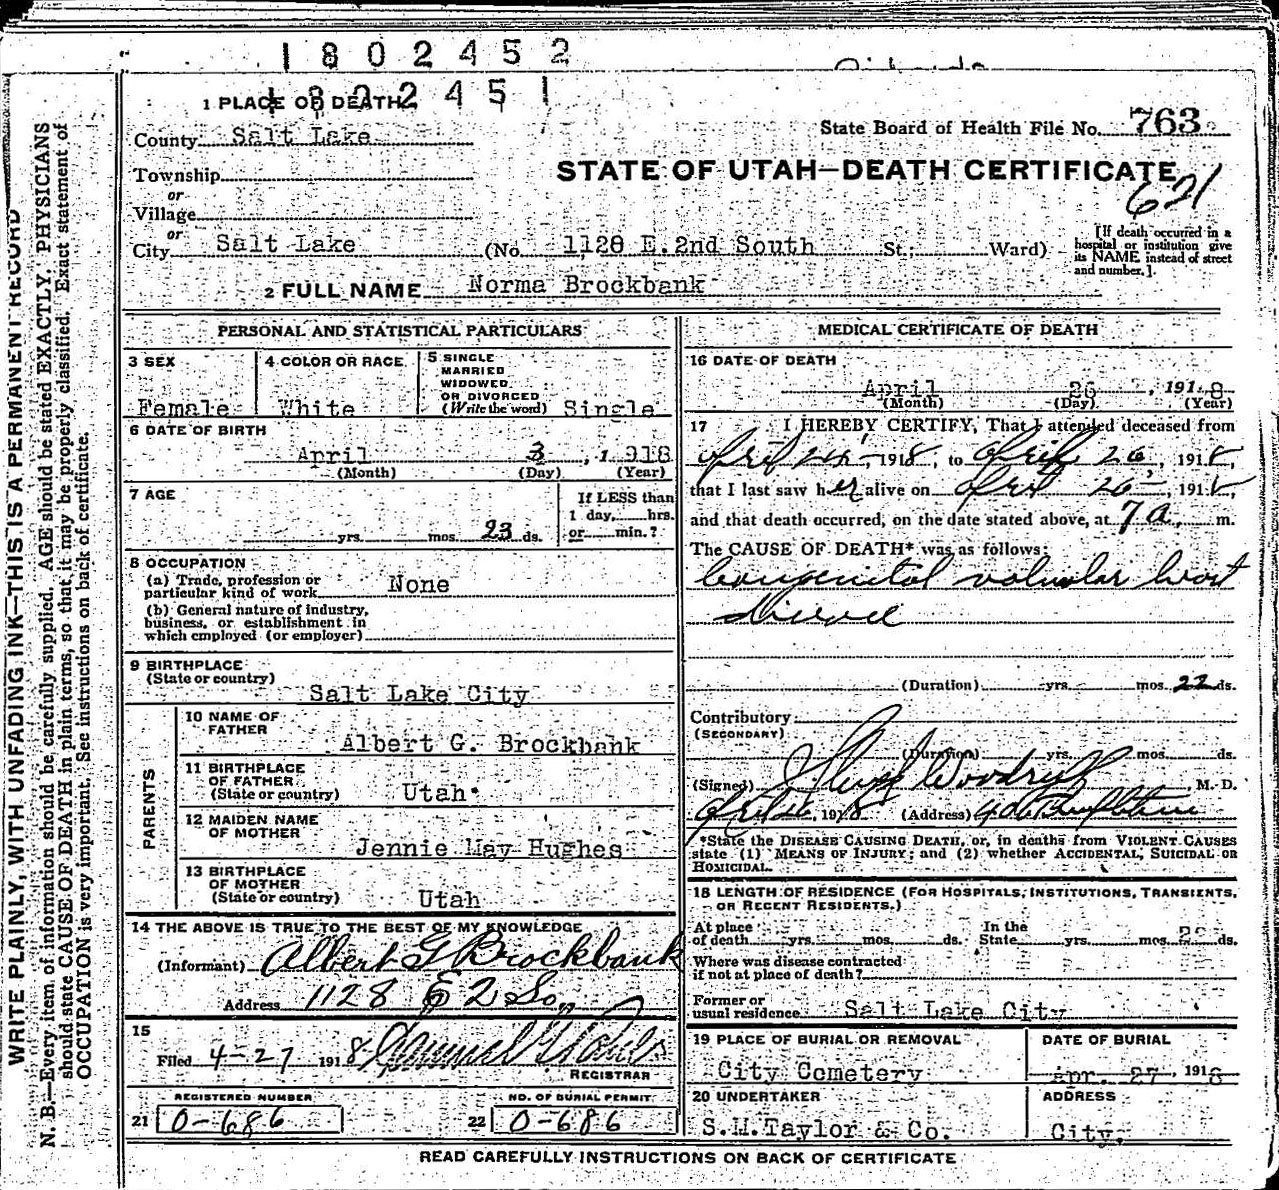 1802452
1802451
1 PLACE OF DEATH
County Salt Lake
State Board of Health File No. 763
Township
STATE OF UTAH—DEATH CERTIFICATE
or
621
Village
or
City Salt Lake (No. 1128 E. 2nd South St.; Ward)
[If death occurred in a hospital or institution give its NAME instead of street and number.]
2 FULL NAME Norma Brockbank
PERSONAL AND STATISTICAL PARTICULARS
3 SEX
Female
4 COLOR OR RACE
White
5 SINGLE
MARRIED
WIDOWED
OR DIVORCED
(Write the word) Single
6 DATE OF BIRTH
April 3, 1918
(Month) (Day) (Year)
7 AGE
yrs. mos. 23 ds.
If LESS than
1 day, hrs.
or min.?
8 OCCUPATION
(a) Trade, profession or
particular kind of work None
(b) General nature of industry,
business, or establishment in
which employed (or employer)
9 BIRTHPLACE
(State or country)
Salt Lake City
PARENTS
10 NAME OF
FATHER
Albert G. Brockbank
11 BIRTHPLACE
OF FATHER
(State or country) Utah
12 MAIDEN NAME
OF MOTHER
Jennie May Hughes
13 BIRTHPLACE
OF MOTHER
(State or country) Utah
14 THE ABOVE IS TRUE TO THE BEST OF MY KNOWLEDGE
(Informant) Albert G Brockbank
Address 1128 E 2 So.
15
Filed 4-27 1918
REGISTRAR
REGISTERED NUMBER
21 0-686
NO. OF BURIAL PERMIT
22 0-686
MEDICAL CERTIFICATE OF DEATH
16 DATE OF DEATH
April 26, 1918
(Month) (Day) (Year)
17 I HEREBY CERTIFY, That I attended deceased from
April 24, 1918, to April 26, 1918,
that I last saw her alive on April 26, 1918,
and that death occurred, on the date stated above, at 7 a. m.
The CAUSE OF DEATH* was as follows:
Congenital valvular heart
disease
(Duration) yrs. mos. 22 ds.
Contributory
(SECONDARY)
(Duration) yrs. mos. ds.
(Signed) Woodruff M. D.
April 26, 1918 (Address)
*State the DISEASE CAUSING DEATH, or, in deaths from VIOLENT CAUSES
state (1) MEANS OF INJURY; and (2) whether ACCIDENTAL, SUICIDAL OR
HOMICIDAL.
18 LENGTH OF RESIDENCE (FOR HOSPITALS, INSTITUTIONS, TRANSIENTS,
OR RECENT RESIDENTS.)
At place
of death yrs. mos. ds.
In the
State yrs. mos. ds.
Where was disease contracted
if not at place of death?
Former or
usual residence Salt Lake City
19 PLACE OF BURIAL OR REMOVAL
City Cemetery
DATE OF BURIAL
Apr. 27, 1918
20 UNDERTAKER
S.M. Taylor & Co.
ADDRESS
City.
READ CAREFULLY INSTRUCTIONS ON BACK OF CERTIFICATE
WRITE PLAINLY, WITH UNFADING INK—THIS IS A PERMANENT RECORD
N. B.—Every item of information should be carefully supplied. AGE should be stated EXACTLY. PHYSICIANS
should state CAUSE OF DEATH in plain terms, so that it may be properly classified. Exact statement of
OCCUPATION is very important. See instructions on back of certificate.